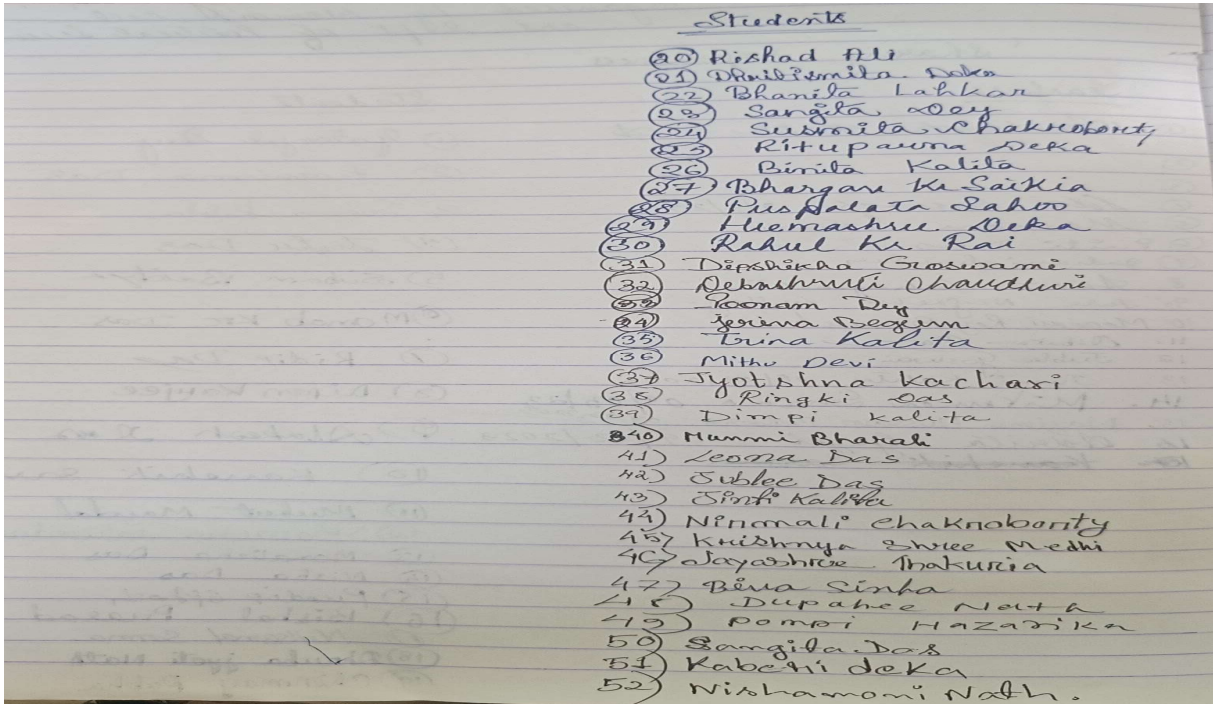 Students
20 Rishad Ali
21) Dhritismita Deka
22) Bhanita Lahkar
23) Sangita Dey
24) Susmita Chakroborty
25 Rituparna Deka
26 Binita Kalita
27) Bhargav Kr Saikia
28 Puspalata Sahoo
29 Hemashree Deka
30) Rahul Kr. Rai
31 Dipshikha Goswami
32 Debashruti Chaudhuri
33 Poonam Dey
34) Jerina Begum
35) Trina Kalita
36 Mithu Devi
37 Jyotshna Kachari
38 Ringki Das
39) Dimpi Kalita
40) Munmi Bharali
41) Leona Das
42) Jublee Das
43) Jinti Kalita
44) Nirmali Chakrobority
45) Krishnya Shree Medhi
46) Jayashree Thakuria
47) Sinha
48) Dupahee Nath
49) Pompi Hazarika
50) Sangita Das
51) Kaberi deka
52) Nishamoni Nath.